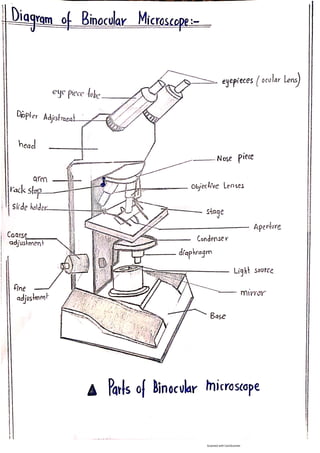 Diagram of Binocular Microscope:-
eyepieces (ocular Lens)
eye piece tube
Diopter Adjustment
head
Nose piece
arm
rack stop
Objective Lenses
Slide holder
Stage
Aperture
Coarse
adjustment
Condenser
diaphragm
Light source
fine
adjustment
mirror
Base
Parts of Binocular microscope
Scanned with CamScanner